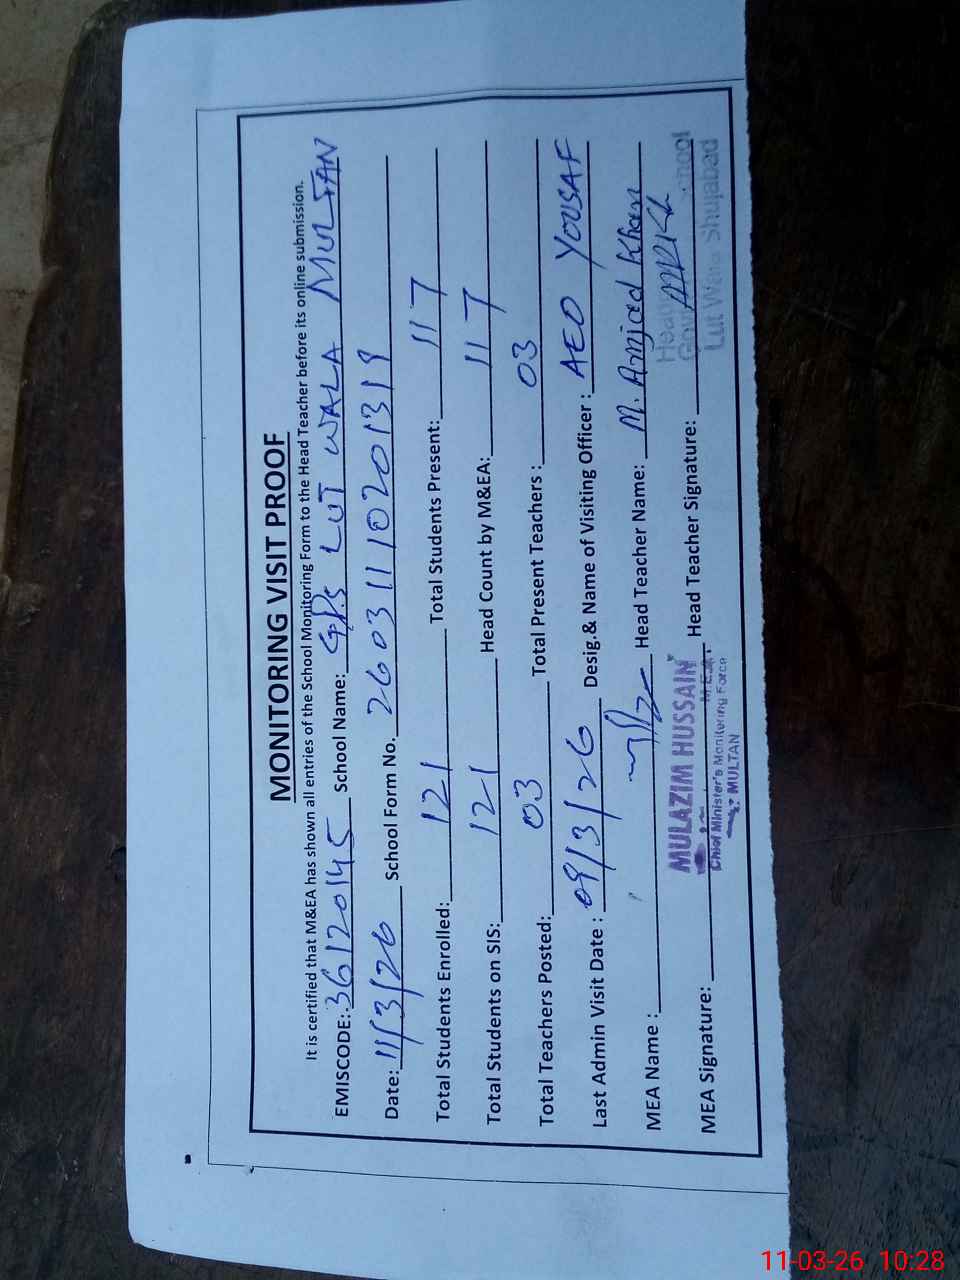 MONITORING VISIT PROOF
It is certified that M&EA has shown all entries of the School Monitoring Form to the Head Teacher before its online submission.
EMISCODE: 36120145 School Name: GPS LUT WALA MULTAN
Date: 11/3/26 School Form No. 26031110201319
Total Students Enrolled: 121 Total Students Present: 117
Total Students on SIS: 121 Head Count by M&EA: 117
Total Teachers Posted: 03 Total Present Teachers: 03
Last Admin Visit Date: 09/3/26 Desig.& Name of Visiting Officer: AEO YOUSAF
MEA Name: Head Teacher Name: M. Amjad Khan
MEA Signature: Head Teacher Signature:
MULAZIM HUSSAIN
M.E.A.
Chief Minister's Monitoring Force
MULTAN
Lut Wala Shujabad
11-03-26 10:28